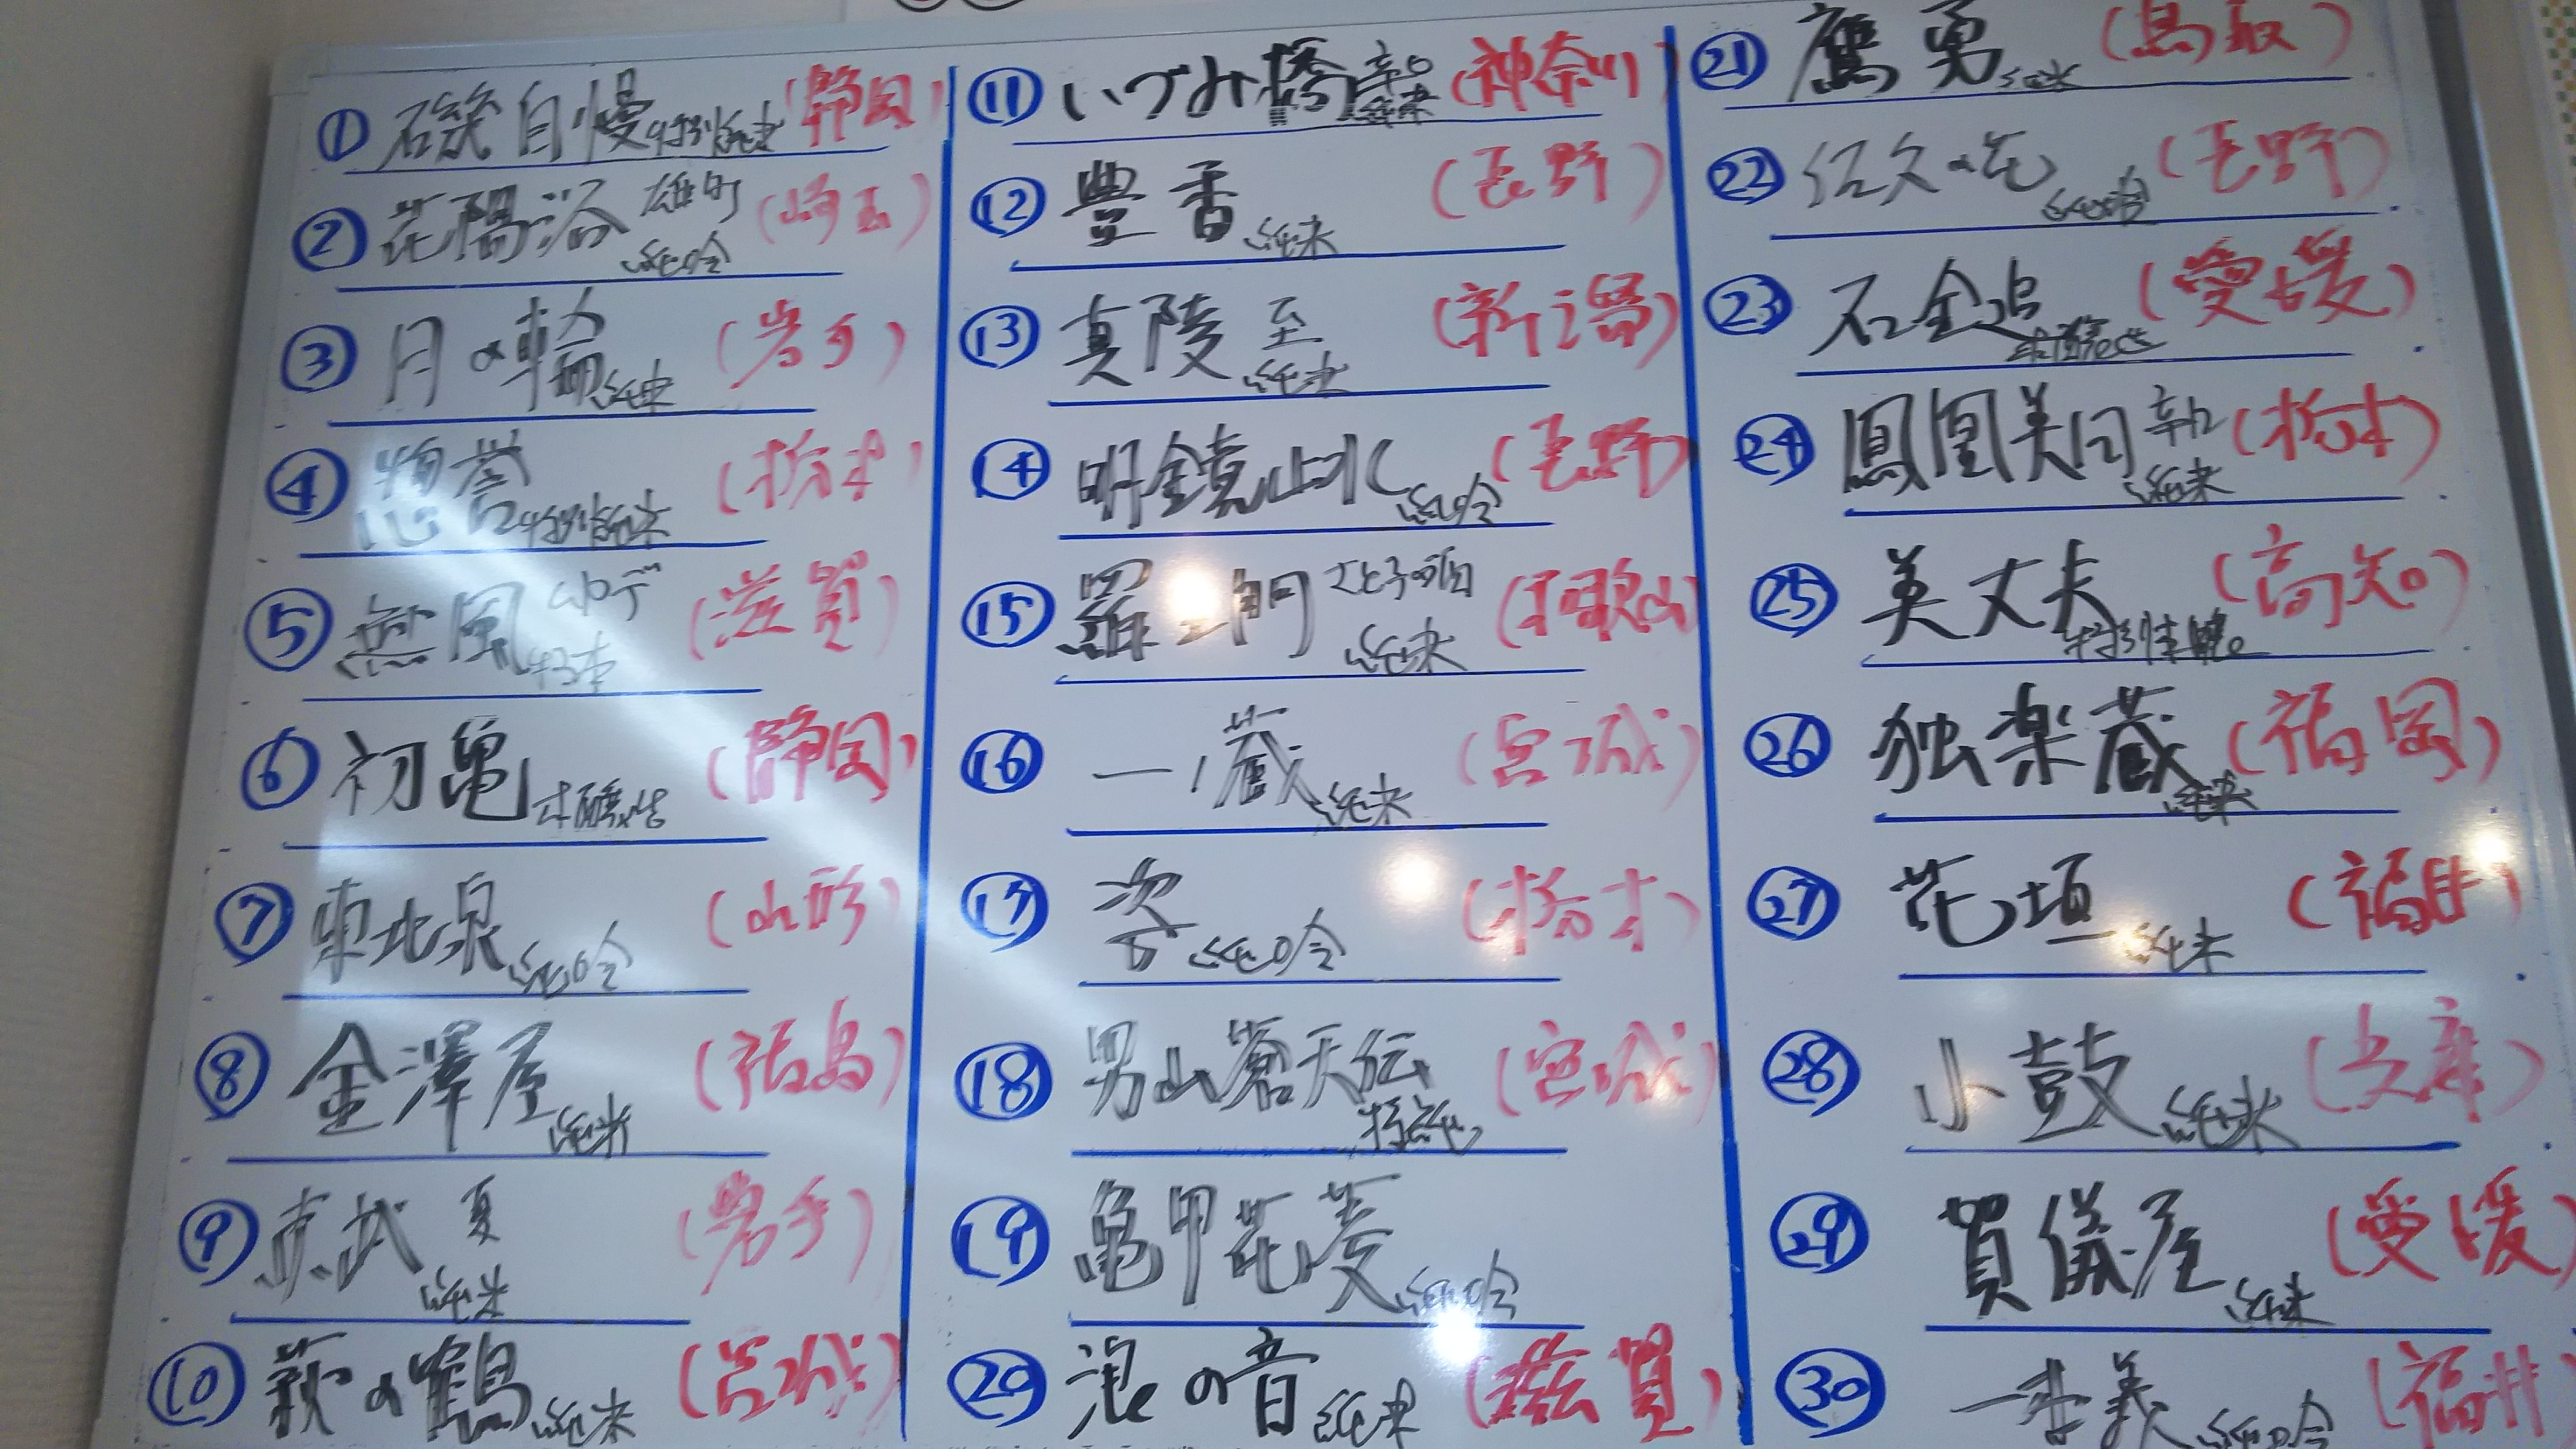 ① 磯自慢 特別純米 (静岡)
② 花陽浴 雄町 純吟 (埼玉)
③ 月の輪 純米 (岩手)
④ 惣誉 特別純米 (栃木)
⑤ 無風 (滋賀)
⑥ 初亀 本醸造 (静岡)
⑦ 東北泉 純吟 (山形)
⑧ 金澤屋 純米 (福島)
⑨ 赤武 夏 純米 (岩手)
⑩ 萩の鶴 純米 (宮城)
⑪ いづみ橋 辛口 純米 (神奈川)
⑫ 豊香 純米 (長野)
⑬ 真稜 至 純米 (新潟)
⑭ 明鏡止水 純吟 (長野)
⑮ 羅生門 純米 (和歌山)
⑯ 一ノ蔵 純米 (宮城)
⑰ 姿 純吟 (栃木)
⑱ 男山蒼天伝 特純 (宮城)
⑲ 亀甲花菱 純吟
⑳ 浪の音 純米 (滋賀)
㉑ 鷹勇 純米 (鳥取)
㉒ 佐久の花 純吟 (長野)
㉓ 石鎚 (愛媛)
㉔ 鳳凰美田 辛口 純米 (栃木)
㉕ 美丈夫 (高知)
㉖ 独楽蔵 純米 (福岡)
㉗ 花垣 純米 (福井)
㉘ 小鼓 純米 (兵庫)
㉙ 賀儀屋 純米 (愛媛)
㉚ 一本義 純吟 (福井)